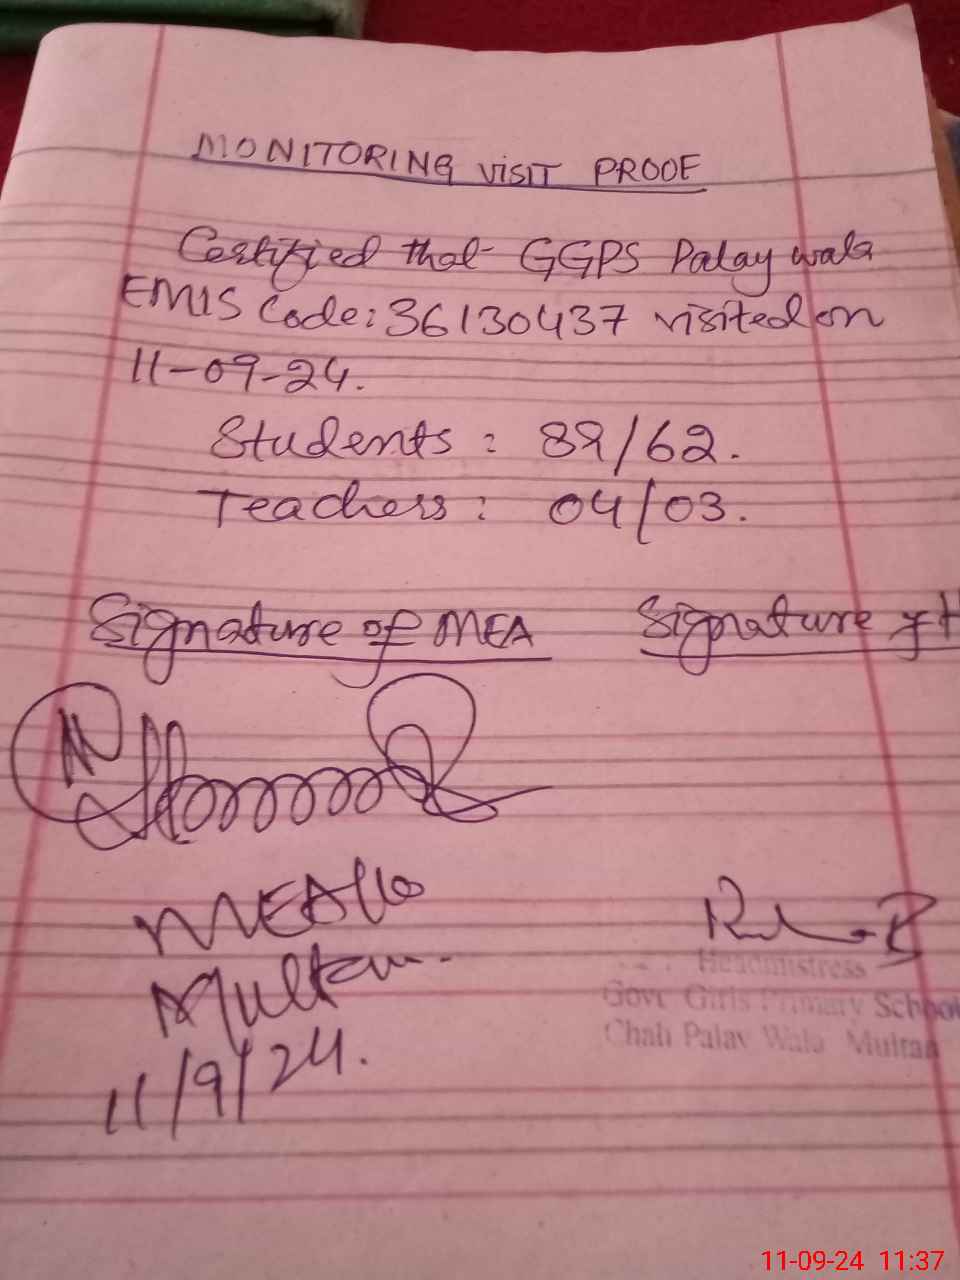 MONITORING VISIT PROOF
Certified that GGPS Palay wala
EMIS Code: 36130437 visited on
11-09-24.
Students : 89/62.
Teachers : 04/03.
Signature of MEA Signature of H
MEA
Multan.
11/9/24.
Headmistress
Govt Girls Primary School
Chah Palay Wala Multan
11-09-24 11:37